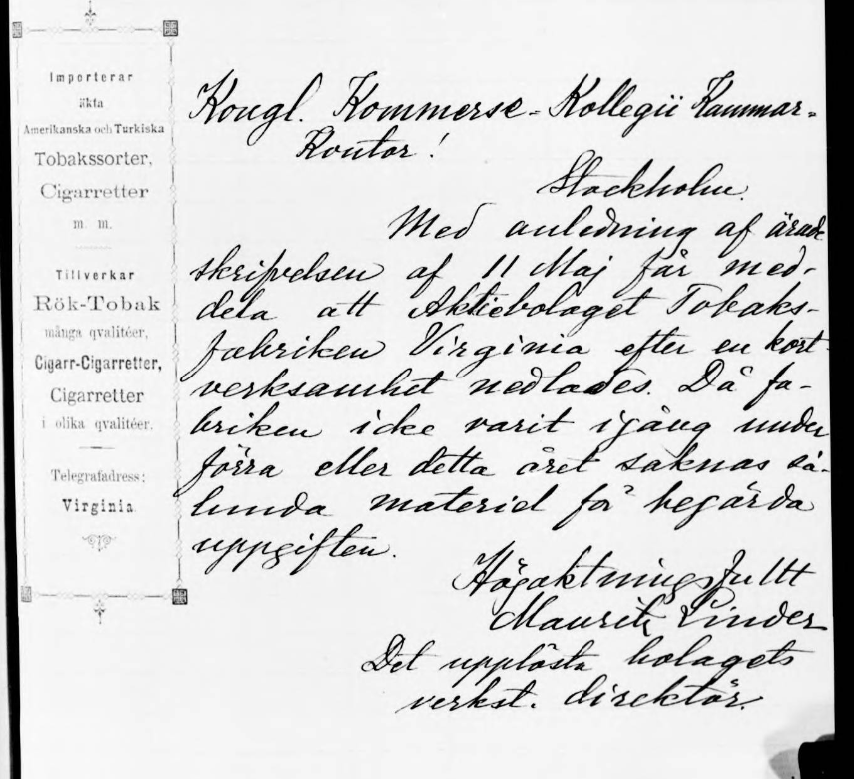 Importerar
äkta
Amerikanska och Turkiska
Tobakssorter,
Cigarretter
m. m.
Tillverkar
Rök-Tobak
många qvalitéer,
Cigarr-Cigarretter,
Cigarretter
i olika qvalitéer.
Telegrafadress:
Virginia.
Kongl. Kommerse-Kollegii Kammar-
Kontor!
Stockholm.
Med anledning af ärade
skrifvelsen af 11 Maj får med-
dela att Aktiebolaget Tobaks-
fabriken Virginia efter en kort
verksamhet nedlades. Då fa-
briken icke varit igång under
förra eller detta året saknas så-
lunda materiel för begärda
uppgiften.
Högaktningsfullt
Mauritz Linder
Det upplösta bolagets
verkst. direktör.